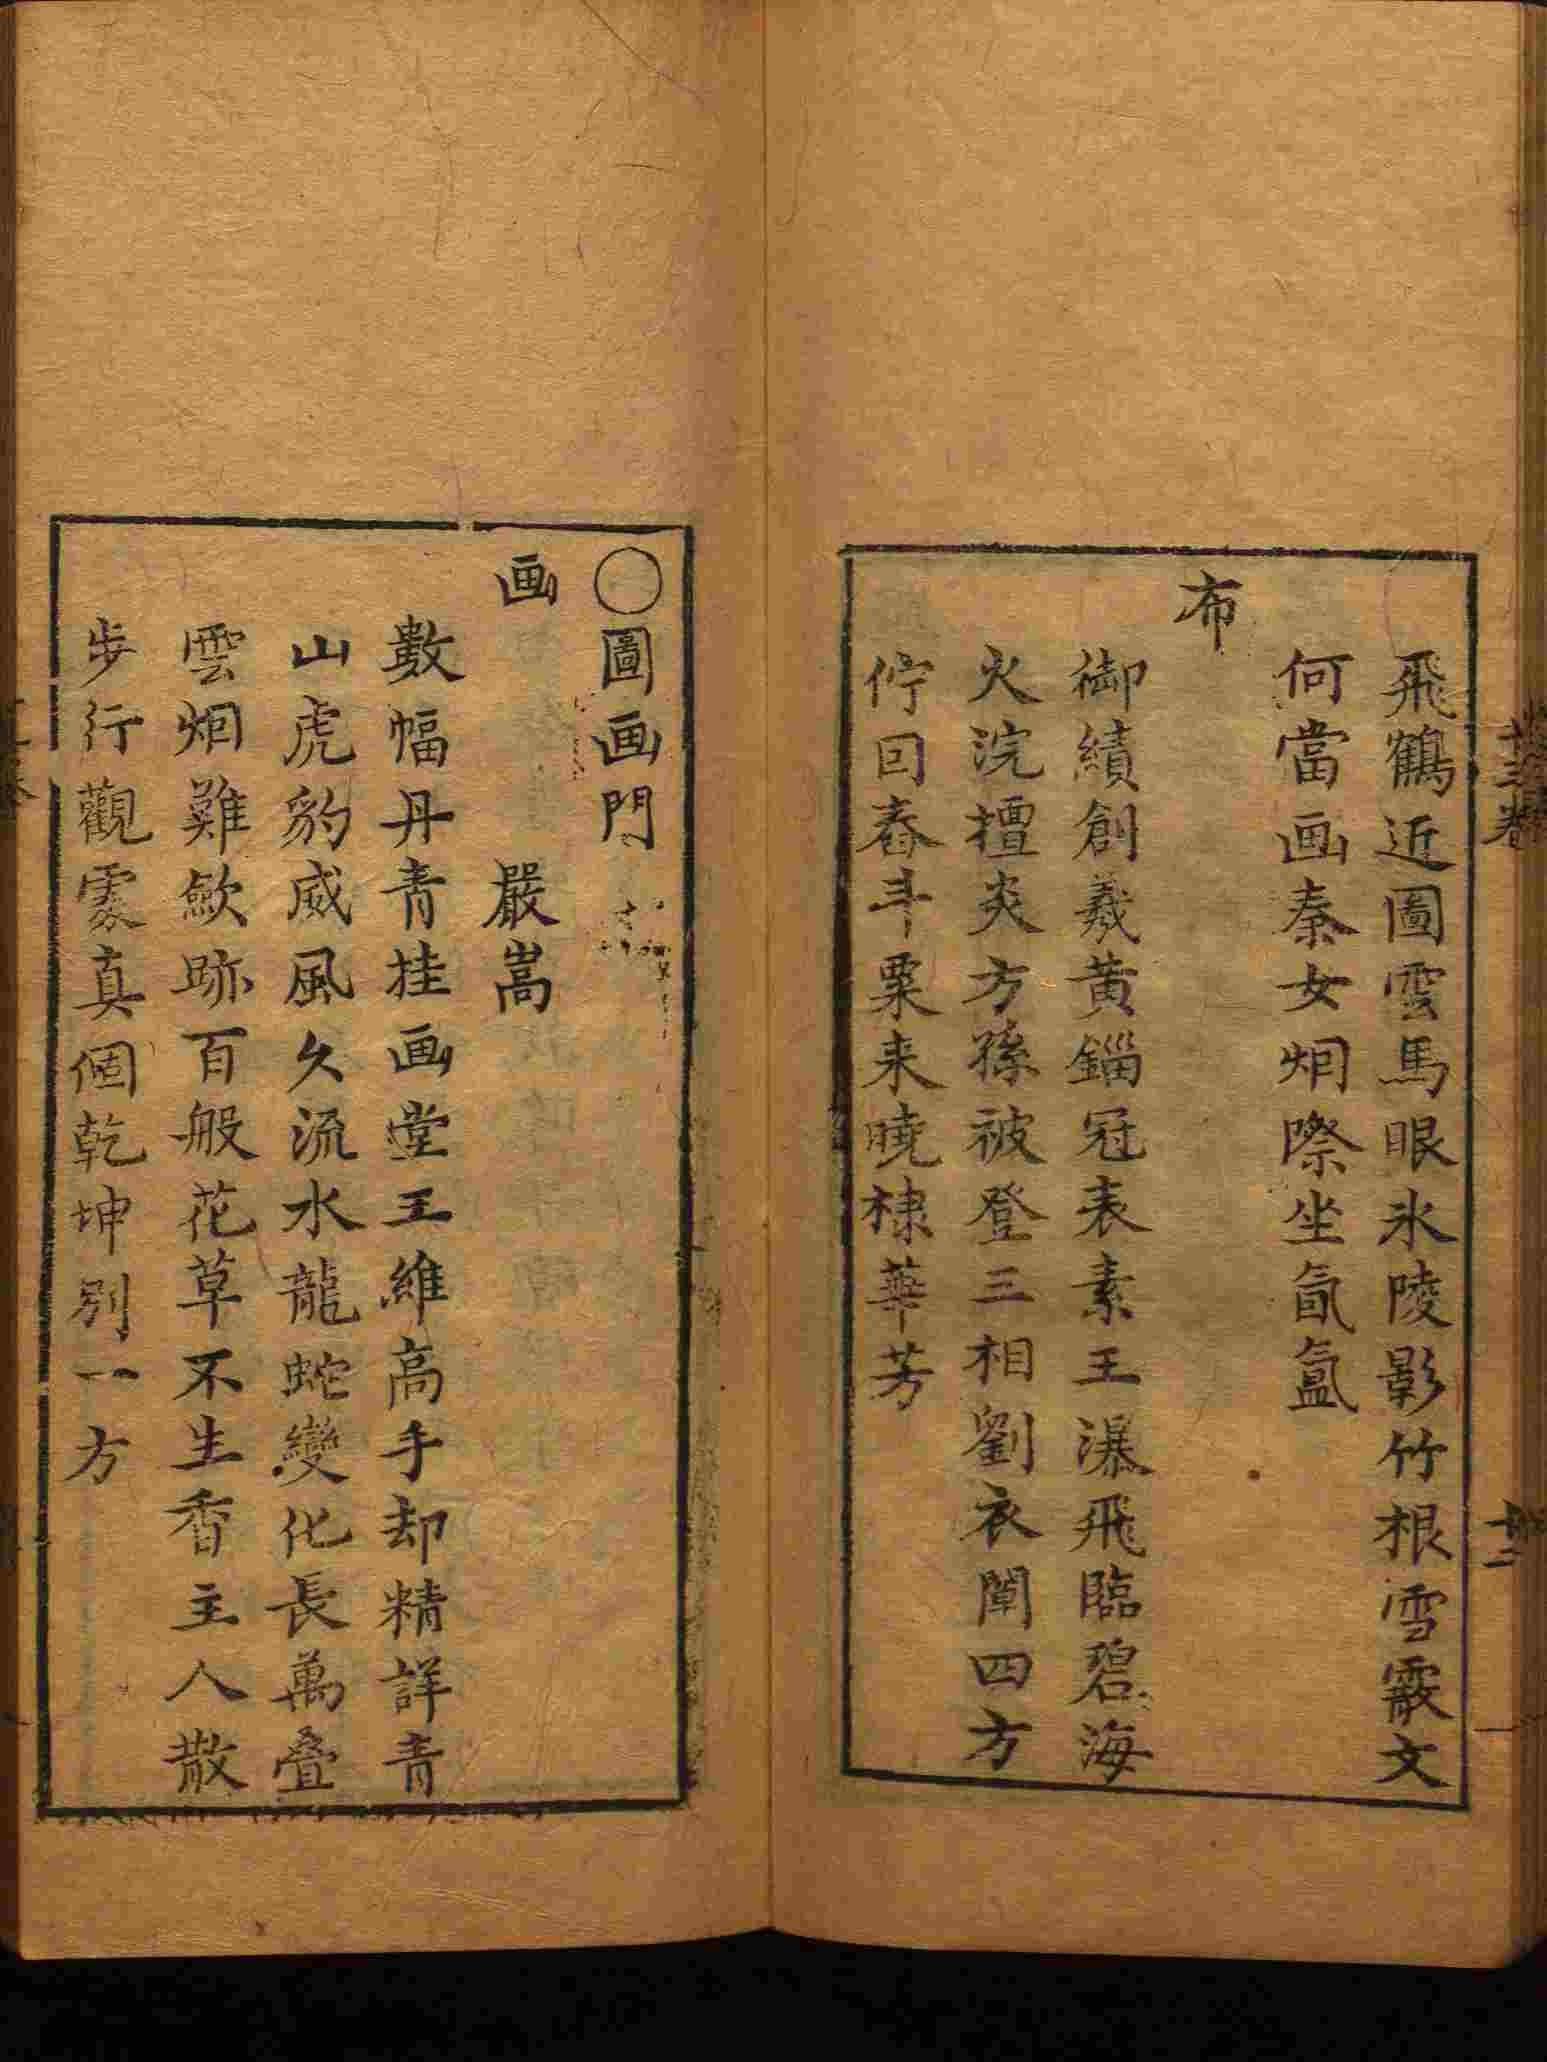 飛鶴近圖雲馬眼氷陵影竹根雪霰文
何當画秦女烟際坐氤氳
布
御績創羲黄錙冠表素王瀑飛臨碧海
火浣擅炎方孫被登三相劉衣闡四方
佇回舂斗粟来曉棣華芳
十三卷
十二
〇圖画門
画
嚴嵩
數幅丹青挂画堂王維高手却精詳青
山虎豹威風久流水龍蛇變化長萬叠
雲烟難歛跡百般花草不生香主人散
步行觀處真個乾坤別一方